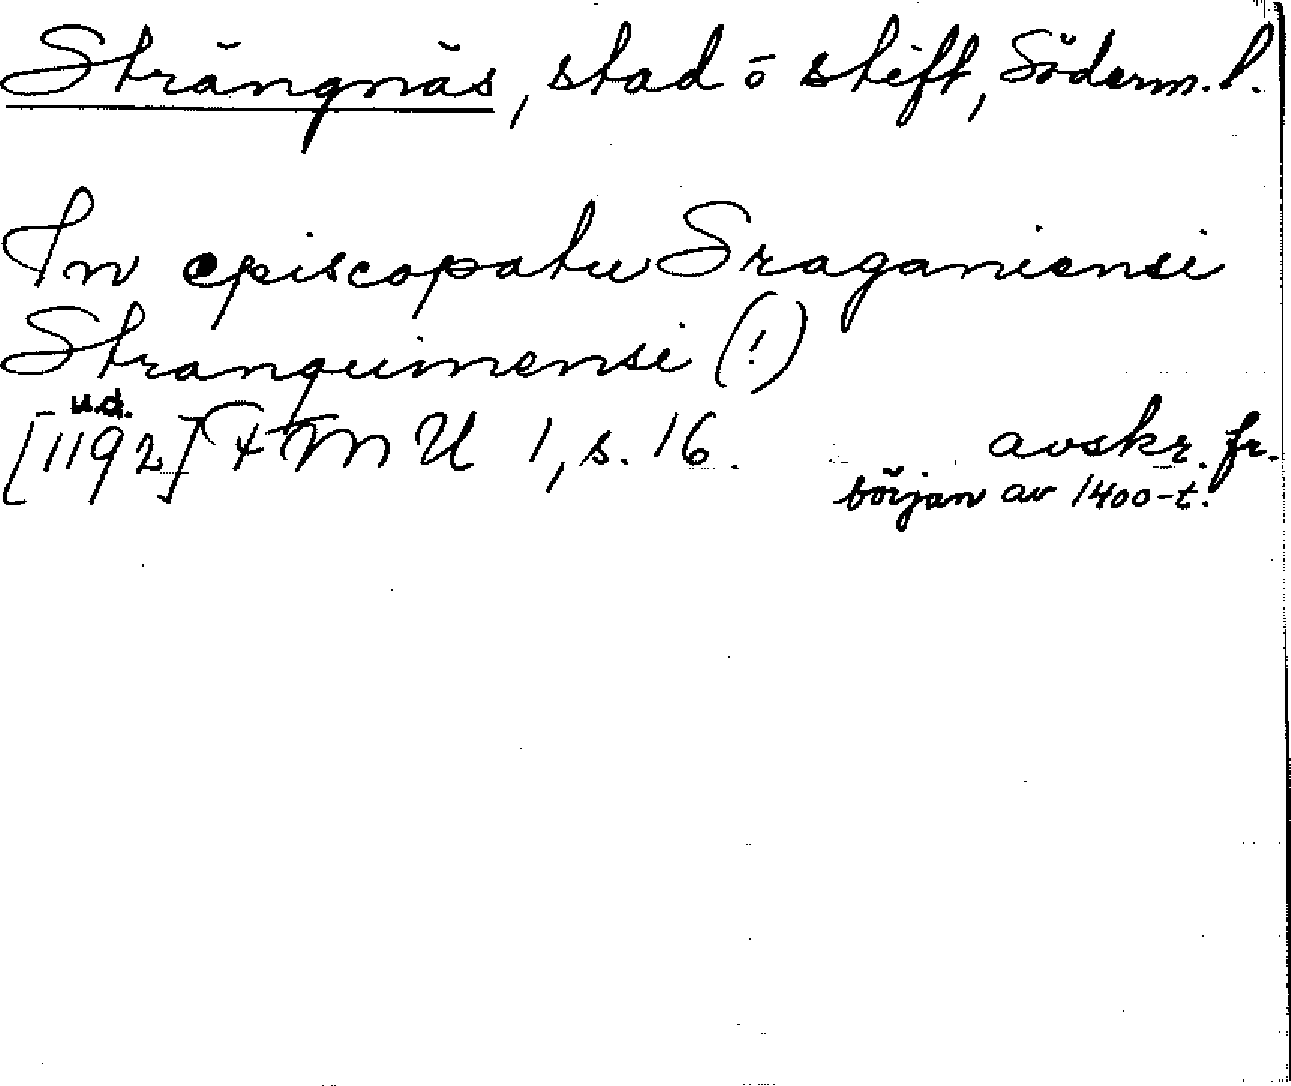 Strängnäs, stad o stift, Söderm. l.
In episcopatu Sraganiensi
Stranguimensi (!)
u.d.
[1192] FMU 1, s. 16. avskr. fr.
början av 1400-t.